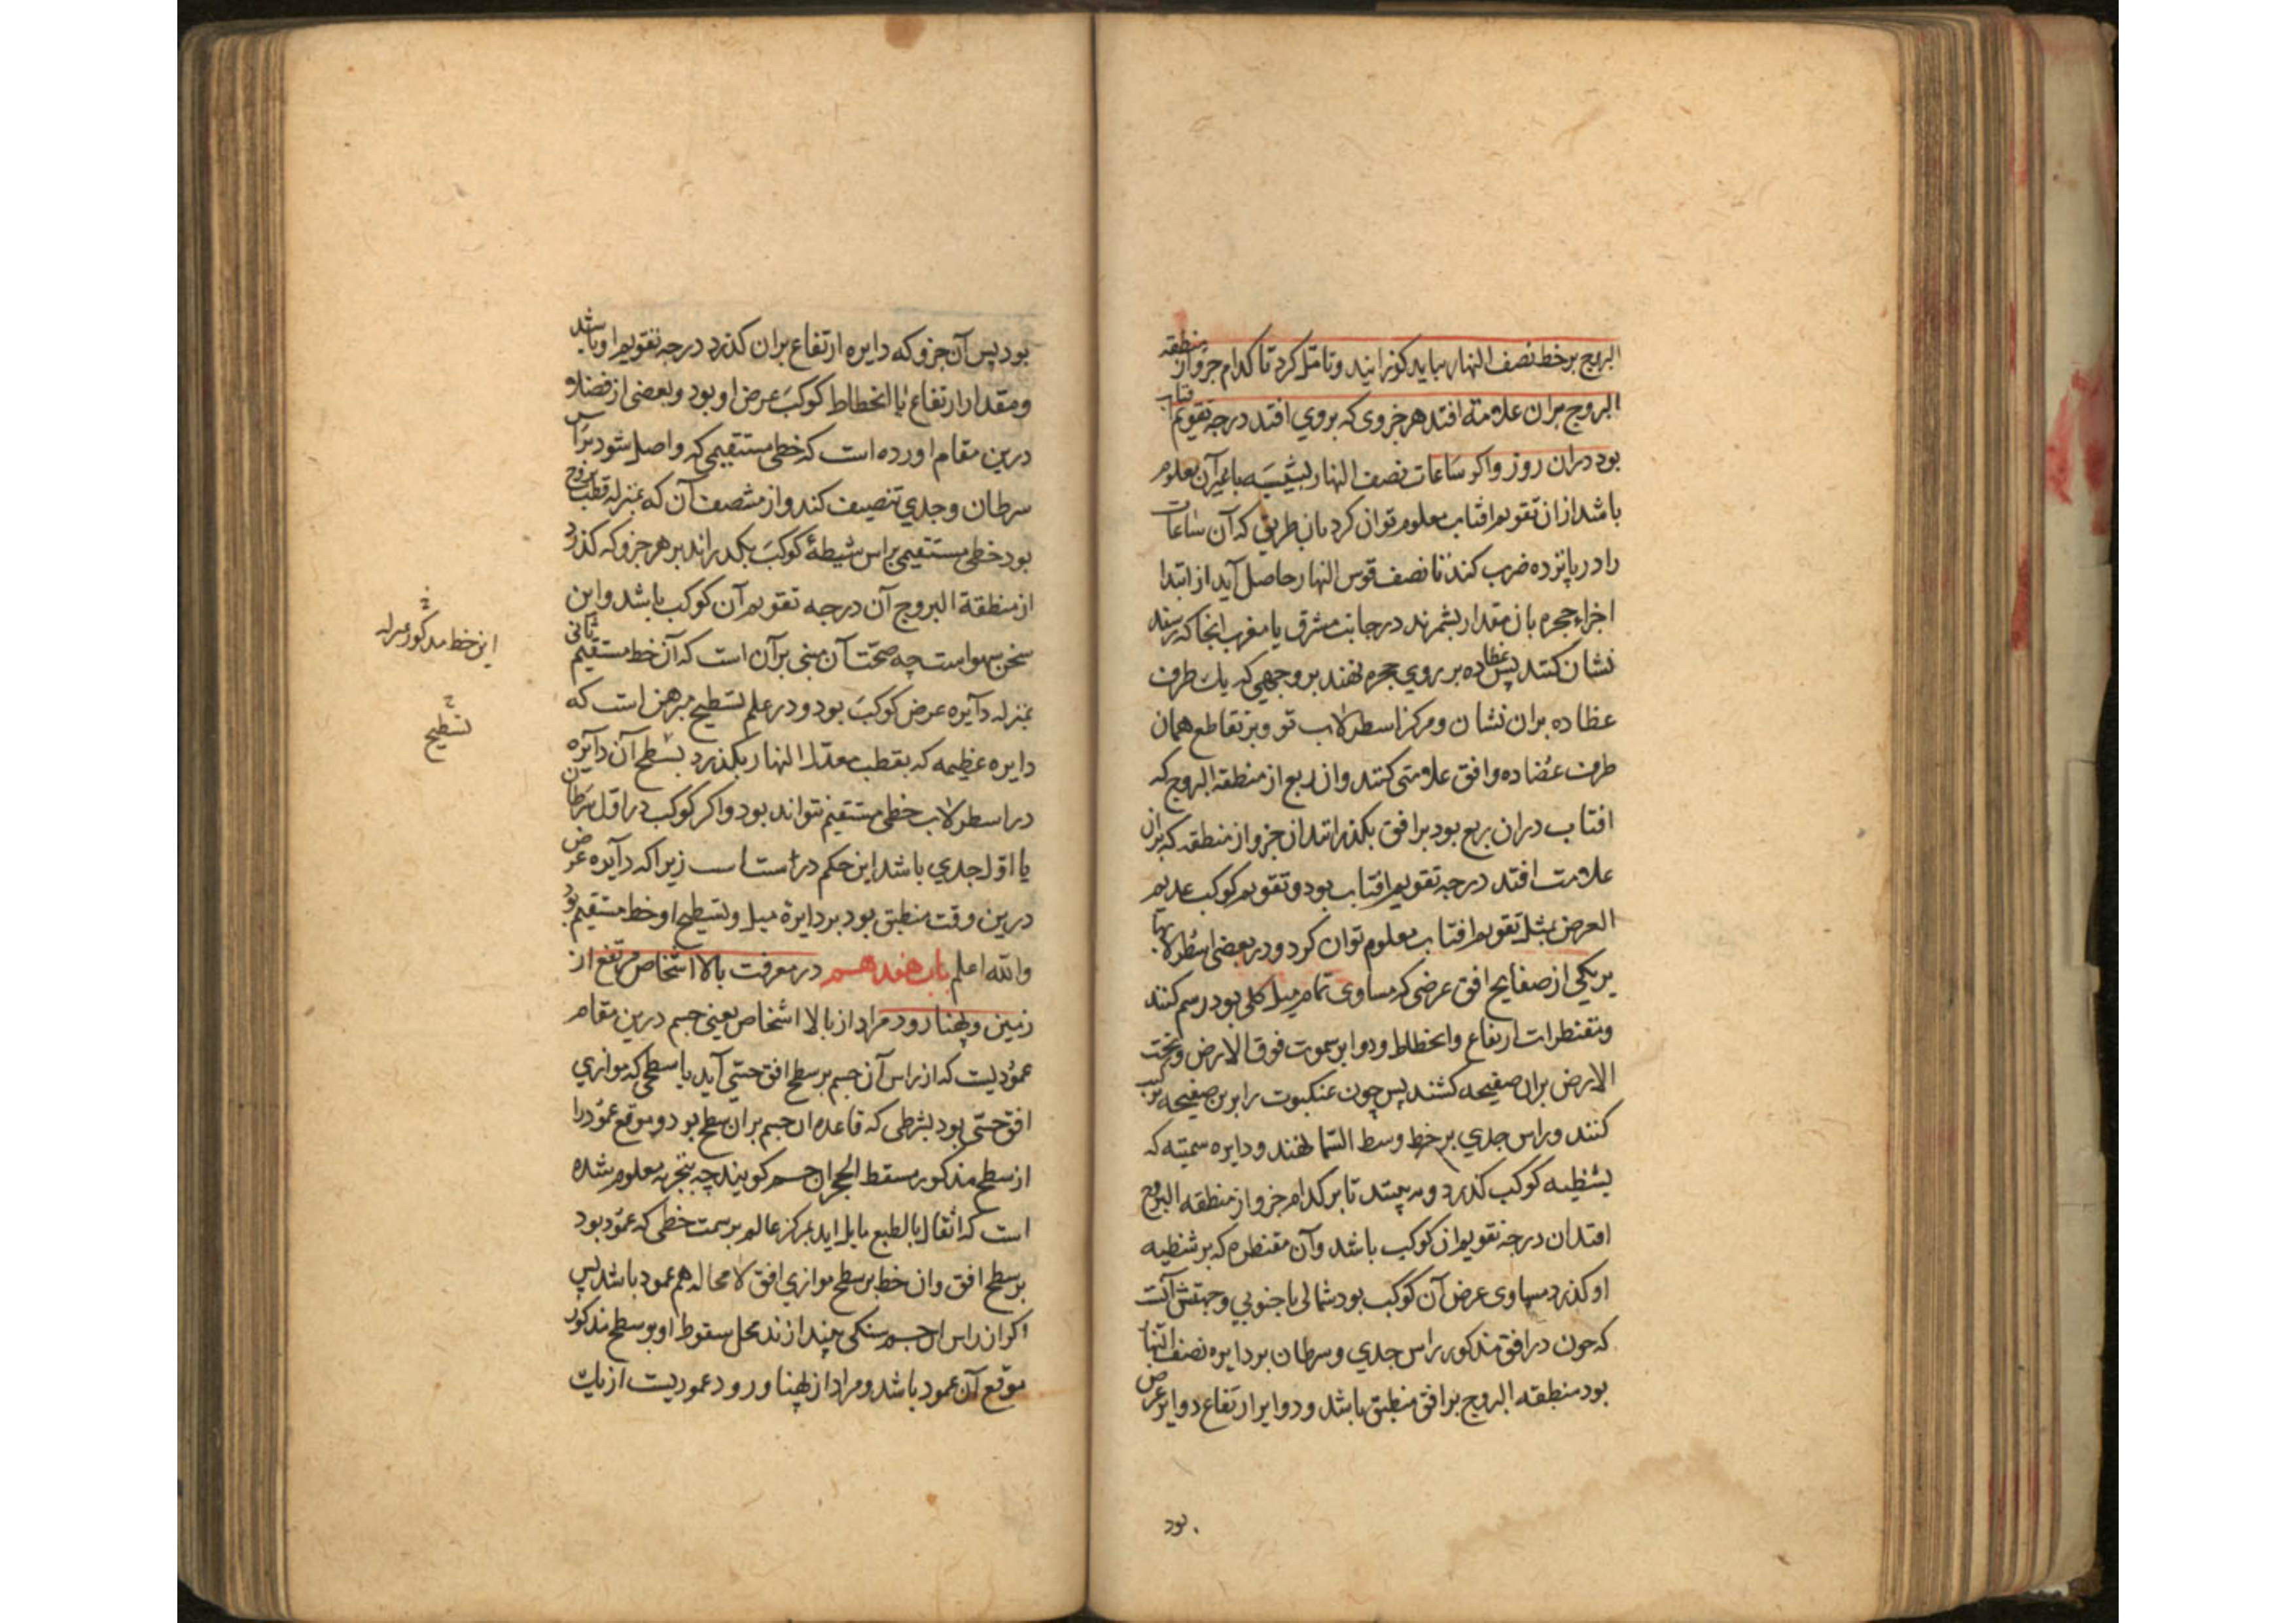 البروج بر خط نصف النهار بباید کوزرانید و تامل کرد تا کدام جزو از منطقه
البروج بران علامته افتد هر جزوی که بروی افتد درجه تقویم افتاب
بود دران روز واکر ساعات نصف النهار بشیسه یا غیر آن معلوم
باشد ازان تقویم افتاب معلوم توان کرد بان طریق که آن ساعات
را در پانزده ضرب کنند تا نصف قوس النهار حاصل آید از ابتدا
اجزاء حجره بان مقدار بشمرند در جانب مشرق یا مغرب انجا که رسند
نشان کنند پس عظاده بر روی حجره نهند بر وجهی که یک طرف
عظاده بران نشان و مرکز اسطرلاب بود و بر تقاطع همان
طرف عضاده وافق علامتی کنند وان ربع از منطقه البروج که
افتاب دران ربع بود بر افق بکذرانند ان جزو از منطقه که بران
علامت افتد درجه تقویم افتاب بود و تقویم کوکب عدیم
العرض بمثل تقویم افتاب معلوم توان کرد و در بعضی اسطرلابها
بر یکی از صفایح افق عرضی که مساوی تمام میل کلی بود رسم کنند
و مقنطرات ارتفاع وانحطاط و دوایر سموت فوق الارض و تحت
الارض بران صفیحه کشند پس چون عنکبوت را برین صفیحه ترکیب
کنند و راس جدی بر خط وسط السما نهند و دایره سمیته که
بشظیه کوکب کذرد و به بینند تا بر کدام جزو از منطقه البروج
افتد ان درجه تقویم ان کوکب باشد وآن مقنطره که بر شظیه
او کذرد مساوی عرض آن کوکب بود شمالی یا جنوبی و جهتش آنست
که چون در افق مذکور راس جدی و سرطان بر دایره نصف النهار
بود منطقه البروج بر افق منطبق باشد و دوایر ارتفاع دوایر عرض
بود
بود پس آن جزو که دایره ارتفاع بران کذرد درجه تقویم او باشد
و مقدار ارتفاع یا انحطاط کوکب عرض او بود و بعضی از فضلا
درین مقام اورده است که خطی مستقیمی که واصل شود براس
سرطان و جدی تنصیف کند و از منتصف آن که بمنزله قطب بروج
بود خطی مستقیمی براس شیطهٔ کوکب بکدراند بر هر جزو که کذرد
از منطقة البروج آن درجه تقویم آن کوکب باشد و این
سخن سهو است چه صحت آن مبنی بر آن است که آن خط مستقیم ثانی
بمنزله دآیره عرض کوکب بود و در علم تسطیح مبرهن است که
دایره عظیمه که بقطب معدل النهار بکذرد بسطح آن دآیره
در اسطرلاب خطی مستقیم نتواند بود واکر کوکب در اول سرطان
یا اول جدی باشد این حکم در است است زیرا که دآیره عرض
درین وقت منطبق بود بر دایرهٔ میل و تسطیح او خط مستقیم بود
والله اعلم باب هفدهم در معرفت بالا اشخاص مرتفع از
زمین و پهنا رود مراد از بالا اشخاص یعنی جسم درین مقام
عمودیست که از راس آن جسم بر سطح افق حسی آید یا سطحی که موازی
افق حسی بود بشرطی که قاعده ان جسم بران سطح بود و موقع عمود را
از سطح مذکور مسقط الحجر ان جسم کویند چه بتجربه معلوم شده
است که اثقال بالطبع مایل اید بمرکز عالم بر سمت خطی که عمود بود
بر سطح افق وان خط بر سطح موازی افق لا محاله هم عمود باشد پس
اکر ان راس ان جسم سنکی بیندازند محل سقوط او بر سطح مذکور
موقع آن عمود باشد و مراد از پهنا و رود عمودیست از یک
این خط مذکور بمنزله
تسطیح